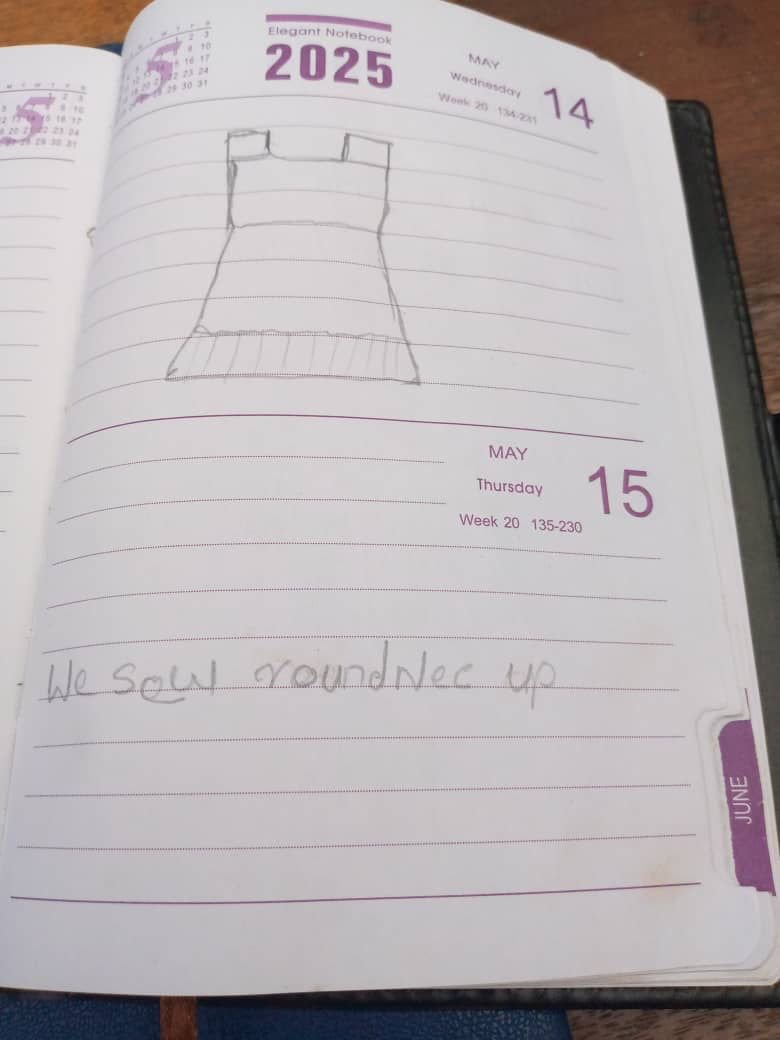 Elegant Notebook
2025
MAY
Wednesday
Week 20 134-231
14
MAY
Thursday
Week 20 135-230
15
We sew roundNec up
JUNE